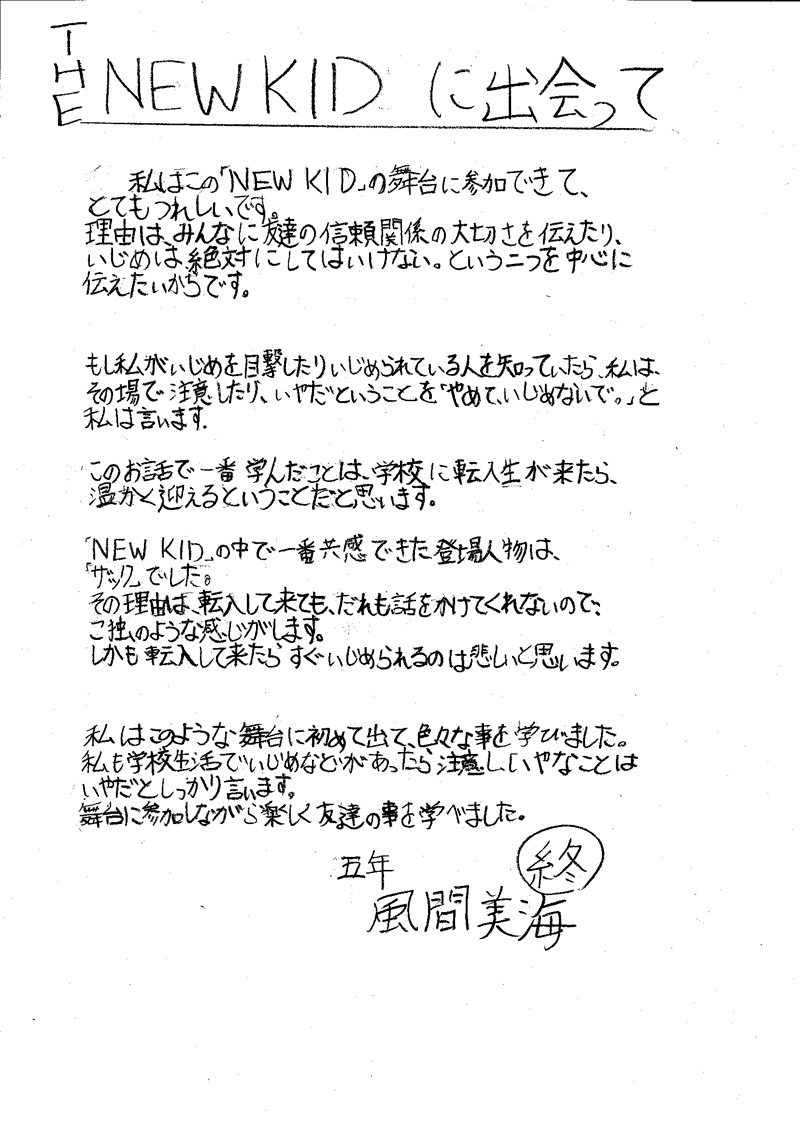 THE NEW KID に出会って
私はこの「NEW KID」の舞台に参加できて、
とてもうれしいです。
理由は、みんなに友達の信頼関係の大切さを伝えたり、
いじめは絶対にしてはいけない。という二つを中心に
伝えたいからです。
もし私がいじめを目撃したりいじめられている人を知っていたら、私は、
その場で注意したり、いやだということを「やめて、いじめないで。」と
私は言います.
このお話で一番学んだことは、学校に転入生が来たら、
温かく迎えるということだと思います。
「NEW KID」の中で一番共感できた登場人物は、
「ザック」でした。
その理由は、転入して来ても、だれも話をかけてくれないので、
こ独のような感じがします。
しかも転入して来たらすぐいじめられるのは悲しいと思います。
私はこのような舞台に初めて出て、色々な事を学びました。
私も学校生活でいじめなどがあったら注意し、いやなことは
いやだとしっかり言います。
舞台に参加しながら楽しく友達の事を学べました。
終
五年
風間美海